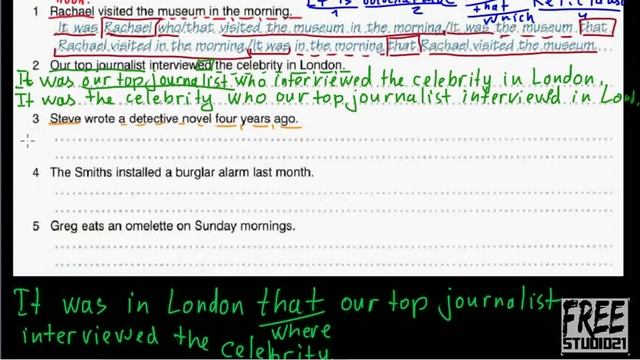 1 Rachael visited the museum in the morning.
1 2 which 4
It was Rachael who/that visited the museum in the morning./It was the museum that
Rachael visited in the morning./It was in the morning that Rachael visited the museum.
2 Our top journalist interviewed the celebrity in London.
It was our top journalist who interviewed the celebrity in London.
It was the celebrity who our top journalist interviewed in
3 Steve wrote a detective novel four years ago.
4 The Smiths installed a burglar alarm last month.
5 Greg eats an omelette on Sunday mornings.
It was in London that our top journalist
where
interviewed the celebrity
FREE
STUDIO21